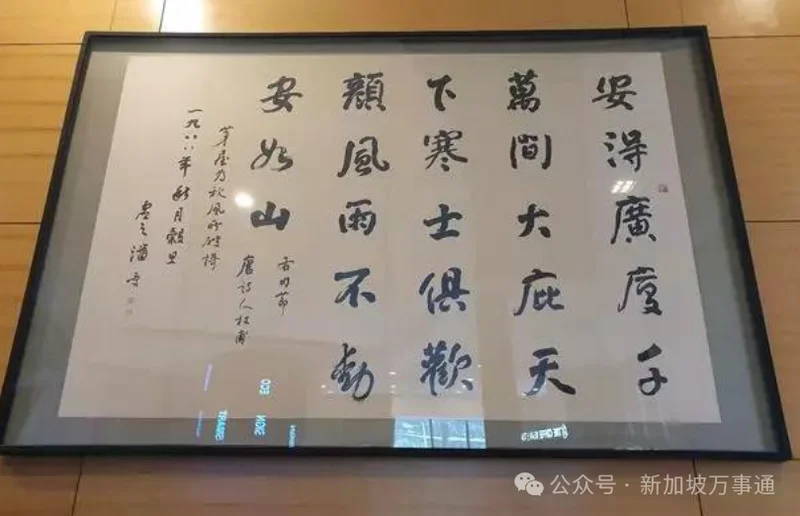 安得廣厦千
萬間大庇天
下寒士俱歡
顏風雨不動
安如山
右節
唐詩人杜甫
茅屋為秋風所破
一九八八年秋月穀旦
潘受
公众号 · 新加坡万事通